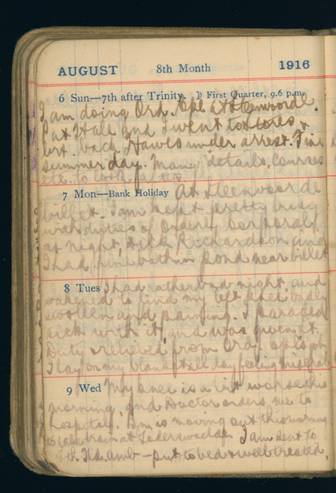 AUGUST 8th Month 1916
6 Sun—7th after Trinity. ☽ First Quarter, 9.6 p.m.
I am doing Ord. Cpl at Steenvorde.
Pat Hale and I went to stores &
back. Hawls under arrest. Fine
summer day. Many details, conros
etc. to look for
7 Mon—Bank Holiday At Steenvoorde
billet. I am kept pretty busy
with duties of orderly Corporal
at night, Richardson and
I had fine bath in pond near billet
8 Tues I had rather bad night, and
wakened to find my left knee badly
swollen and paining. I paraded
sick with it, and was given
Duty relieved from Ord Cpls job
I lay on my blankets all day feeling miserable
9 Wed My knee is a bit worse this
morning, and Doctor orders me to
hospital. Bn. is moving out this morning
to entrain at I am sent to
Fld. Amb — put to bed & well treated.